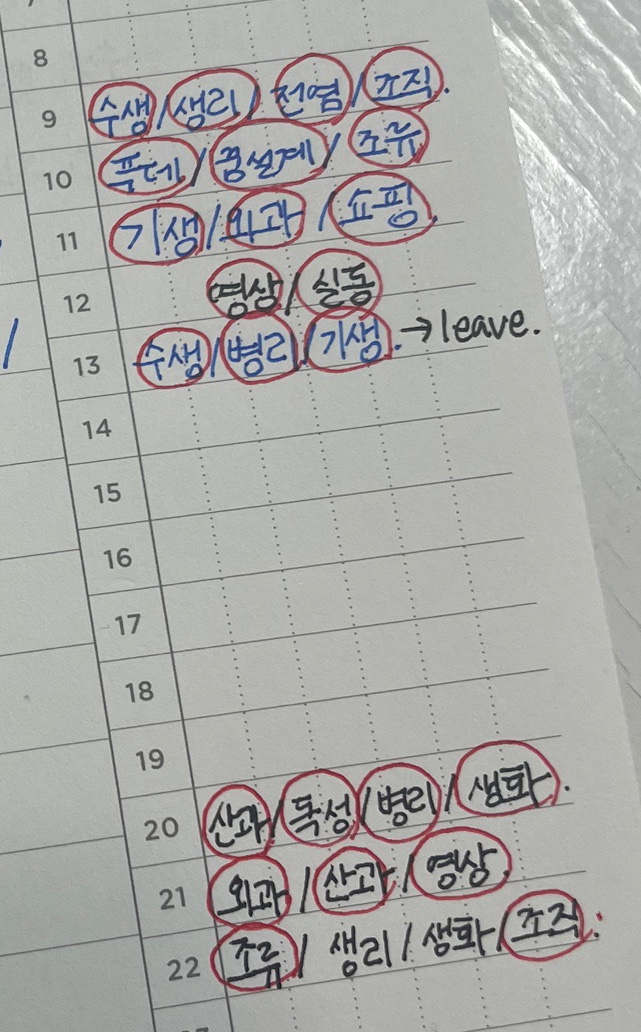 8
9 수생/생리/전염/조직.
10 폭데/꿈설계/조류
11 기생/외과/쇼핑.
12 영상/실동
13 수생/병리/기생. → leave.
14
15
16
17
18
19
20 산과/독성/병리/생화.
21 외과/산과/영상.
22 조류/생리/생화/조직.